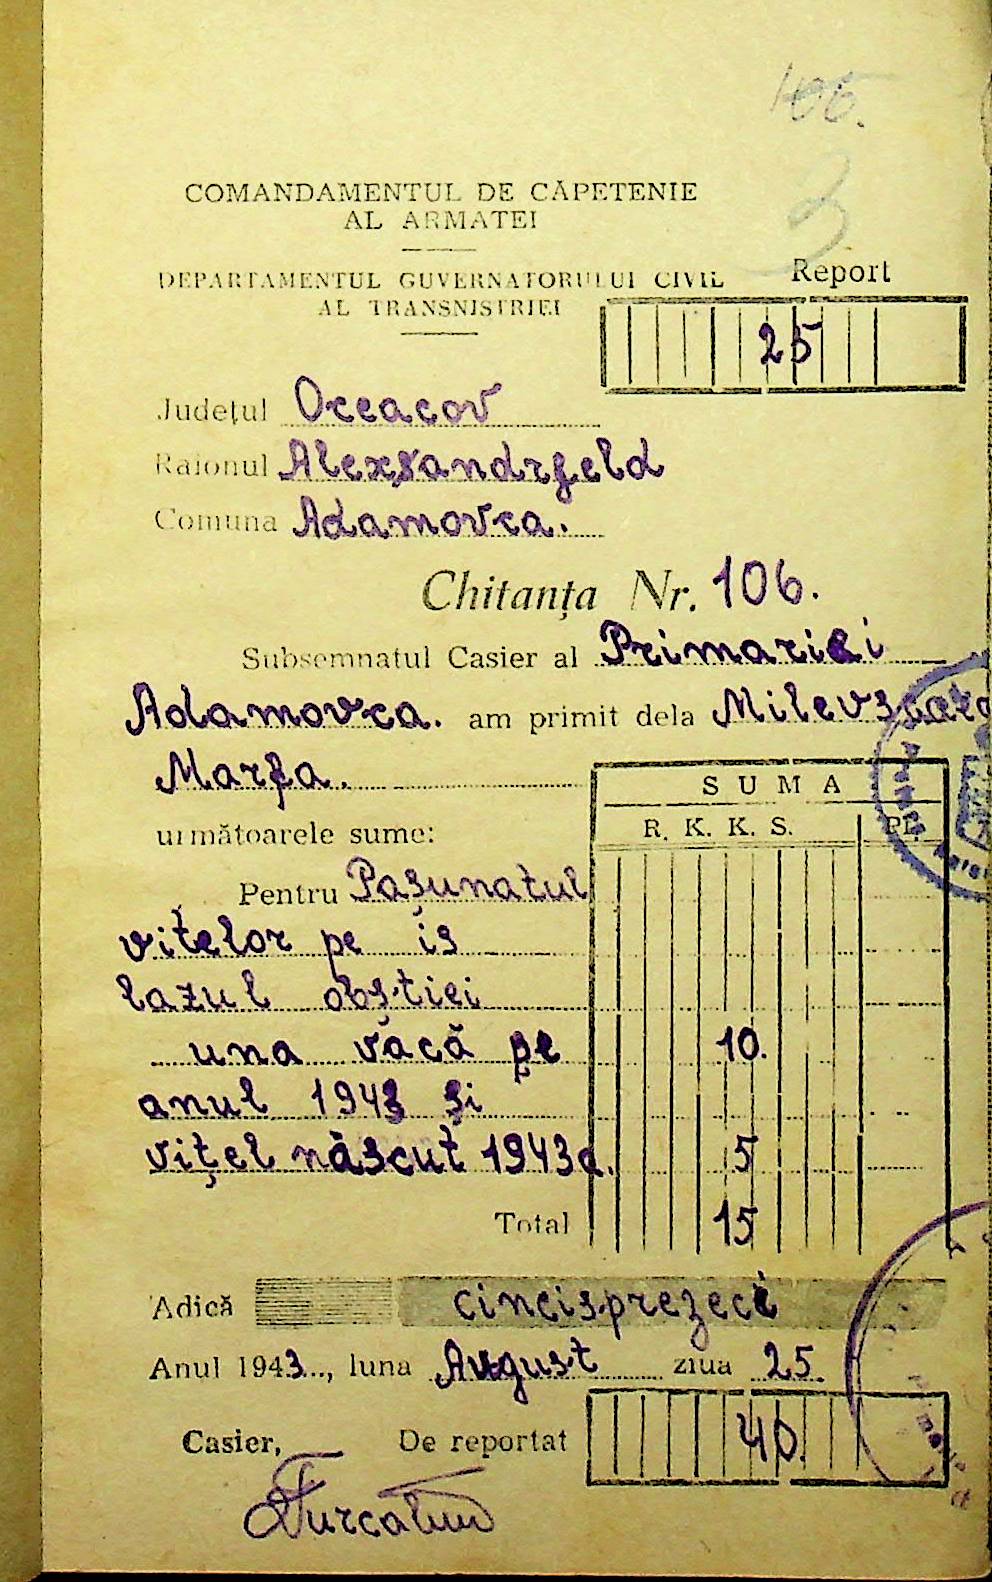 106.
3
COMANDAMENTUL DE CĂPETENIE
AL ARMATEI
DEPARTAMENTUL GUVERNATORULUI CIVIL
AL TRANSNISTRIEI
Report
25
Județul Oceacov
Raionul Alexsandrfeld
Comuna Adamovca.
Chitanța Nr. 106.
Subsemnatul Casier al Primariei
Adamovca. am primit dela
Marfa.
SUMA
următoarele sume:
R. K. K. S. Pf.
Pentru Pașunatul
vitelor pe is
lazul obștiei
una vacă pe 10.
anul 1943 și
vițel născut 1943 a. 5
Total 15
Adică cincisprezeci
Anul 1943..., luna August ziua 25.
Casier, De reportat 40.